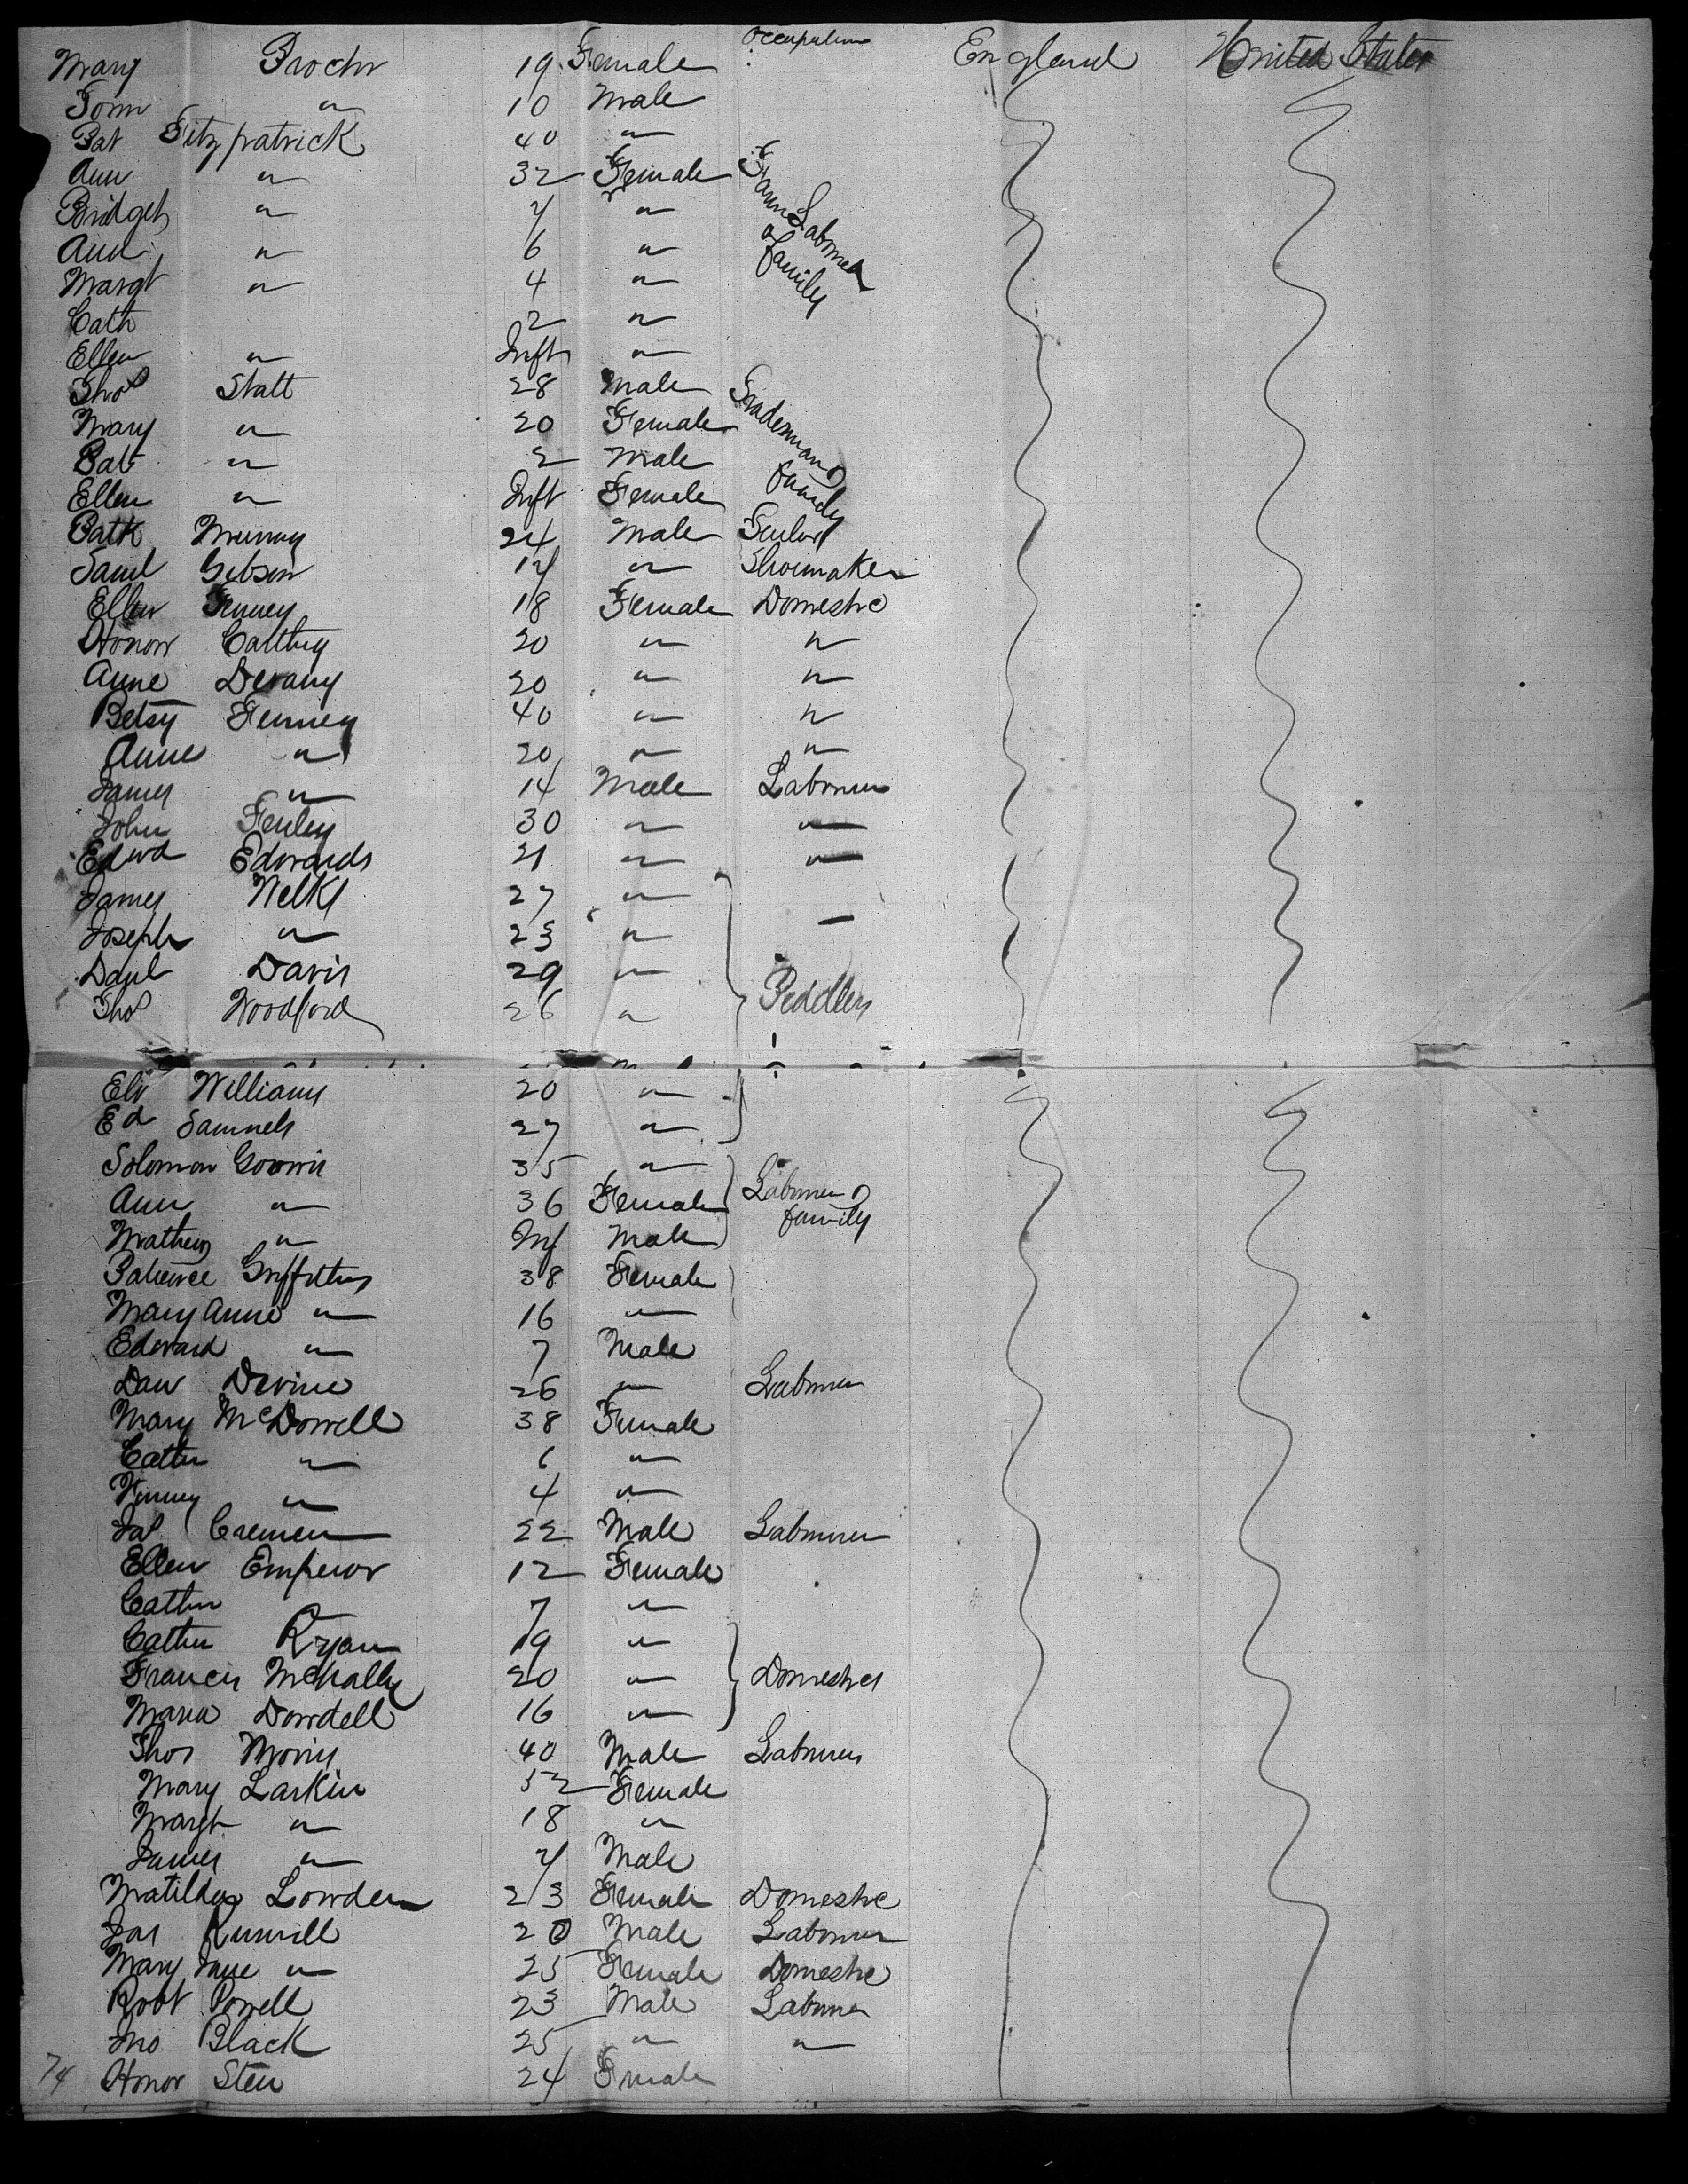 Occupation
Mary 19 Female England United States
Tom " 10 Male
Pat Fitzpatrick 40 "
Ann " 32 Female Farm Labourer
Bridget " 7 " &
Ann " 6 " family
Margt " 4 "
Cath 2 "
Ellen " Inft "
Thos Statt 28 Male Tradesman &
Mary " 20 Female family
Pat " 2 Male
Ellen " Inft Female
Patk Murray 24 Male
Saml Gibson 17 " Shoemaker
Ellen 18 Female Domestic
Honor 20 " "
Anne Devany 20 " "
Betsy Feeney 40 " "
Anne " 20 " "
James " 14 Male Labourer
John Fenley 30 " "
Edwd Edwards 21 " "
James 27 "
Joseph " 23 "
Danl Davis 29 " Peddlers
Thos Woodford 26 "
Eli Williams 20 "
Ed Samuels 27 "
Solomon 35 "
Ann " 36 Female Labourer &
Mathew " Inf Male family
Patience Griffiths 38 Female
Mary Anne " 16 "
Edward " 7 Male
Dan Devine 26 " Labourer
Mary McDowell 38 Female
Cathn " 6 "
" 4 "
Jas 22 Male Labourer
Ellen Emperor 12 Female
Cathn 7 "
Cathn Ryan 19 "
Francis McNally 20 " Domestics
Maria Dowdell 16 "
Thos Morris 40 Male Labourer
Mary Larkin 52 Female
Margt " 18 "
James " 7 Male
Matilda Lowden 23 Female Domestic
Jas 20 Male Labourer
Mary Jane " 25 Female Domestic
Robt Powell 23 Male Labourer
Jno Black 25 " "
74 Honor 24 Female